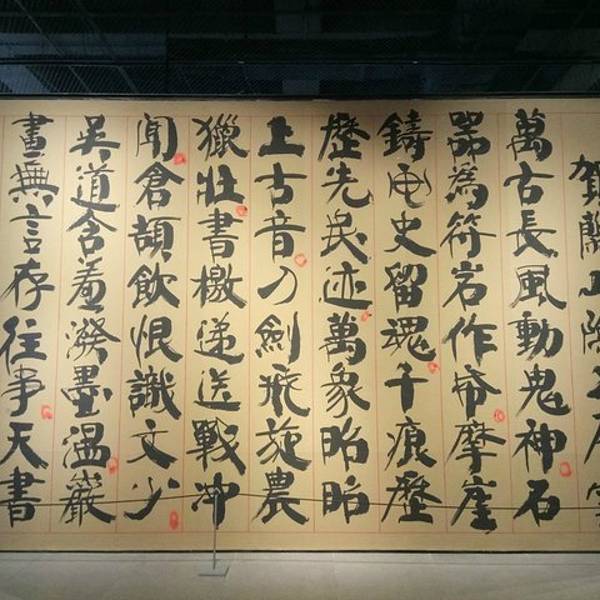 賀蘭山
萬古長風動鬼神石
器為符岩作帛摩崖
鑄史留魂千痕歷
歷先民迹萬象昭昭
上古音刀劍飛施農
獵壯書檄递送戰冲
聞倉頡飲恨識文少
吳道含羞潑墨溫嚴
畫無言存往事天書